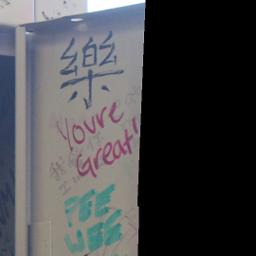 樂
Youre
Great!
PEE
WEE